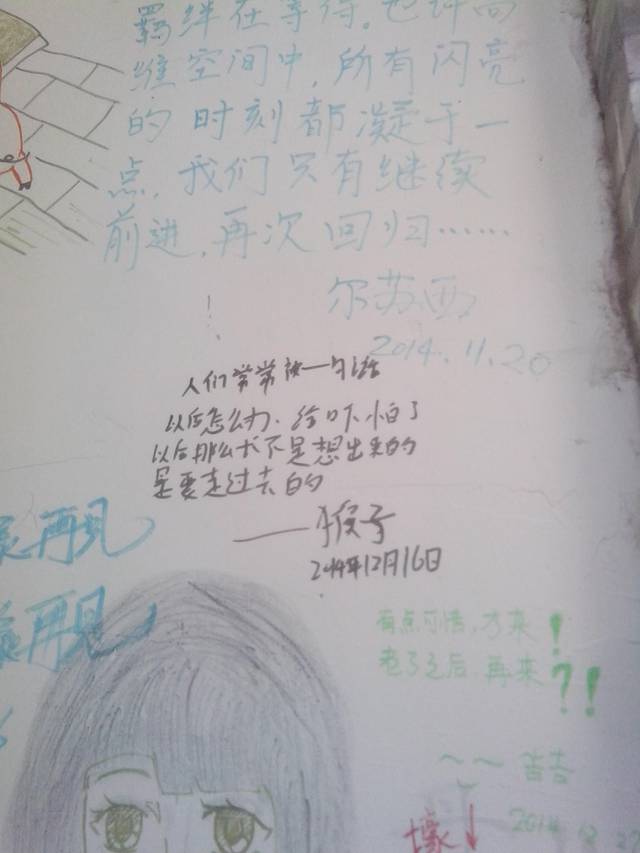 羁绊在等待。也许高
维空间中，所有闪亮
的时刻都凝于一
点，我们只有继续
前进，再次回归……
尔苏西
2014.11.20
人们常常被一句话
以后怎么办、给吓怕了
以后那么长不是想出来的
是要走过去的
——猴子
2014年12月16日
再见
再见
有点可惜，才来！
老了之后，再来?!
~~ 吉吉
2014.12.27